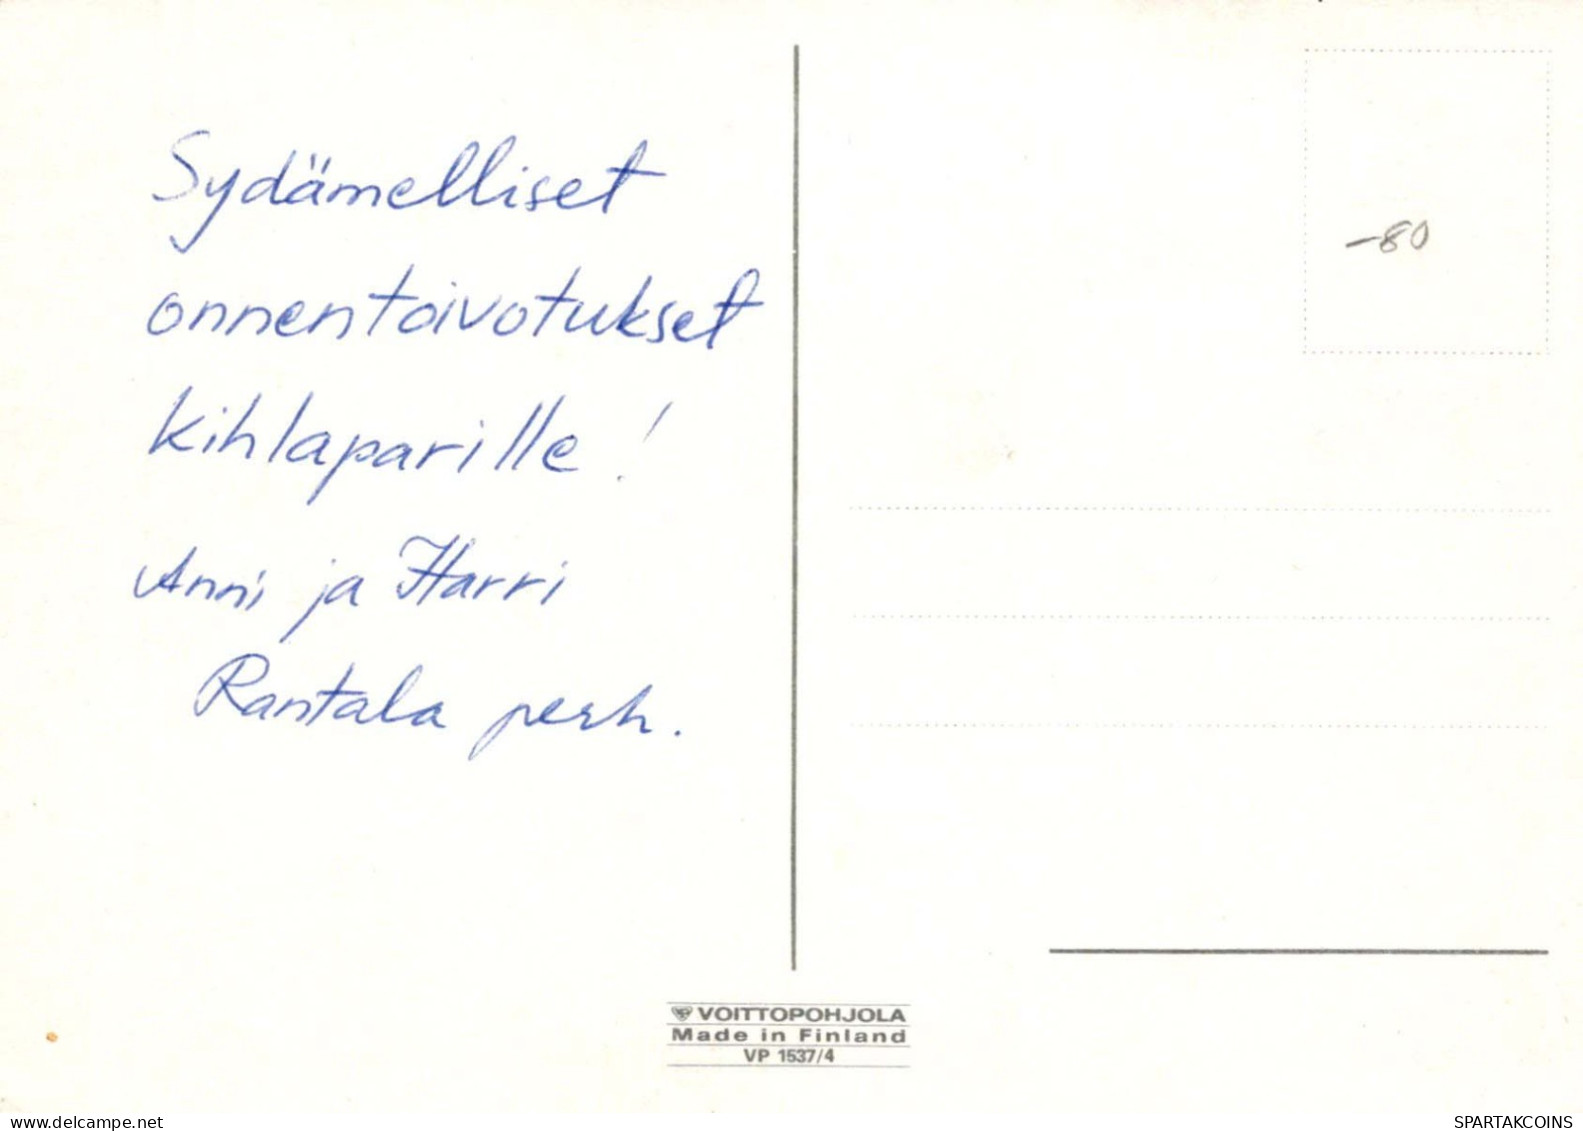 Sydämelliset
onnentoivotukset
kihlaparille !
Anni ja Harri
Rantala perh.
-80
VOITTOPOHJOLA
Made in Finland
VP 1537/4
delcampe.net
SPARTAKCOINS